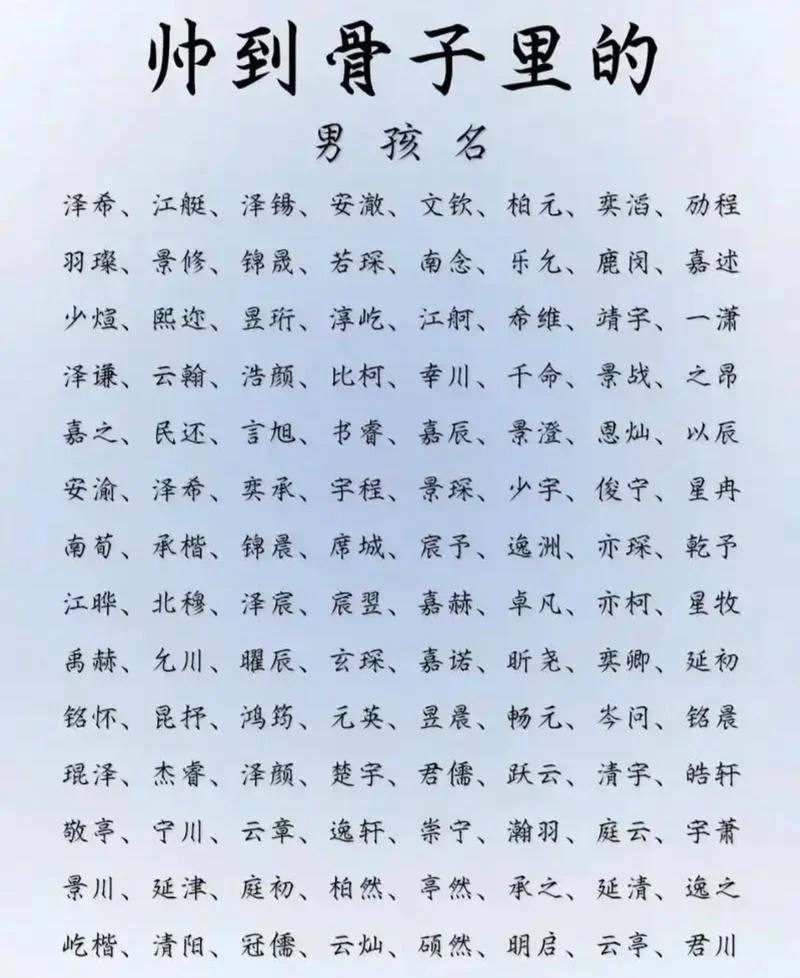 帅到骨子里的
男孩名
泽希、江艇、泽锡、安澈、文钦、柏元、奕滔、劢程
羽璨、景修、锦晟、若琛、南念、乐允、鹿闵、嘉述
少煊、熙迩、昱珩、淳屹、江舸、希维、靖宇、一潇
泽谦、云翰、浩颜、比柯、幸川、千命、景战、之昂
嘉之、民还、言旭、书睿、嘉辰、景澄、恩灿、以辰
安渝、泽希、奕承、宇程、景琛、少宇、俊宁、星冉
南荀、承楷、锦晨、席城、宸予、逸洲、亦琛、乾予
江晔、北穆、泽宸、宸翌、嘉赫、卓凡、亦柯、星牧
禹赫、允川、曜辰、玄琛、嘉诺、昕尧、奕卿、延初
铭怀、昆抒、鸿筠、元英、昱晨、畅元、岑问、铭晨
琨泽、杰睿、泽颜、楚宇、君儒、跃云、清宇、皓轩
敬亭、宁川、云章、逸轩、崇宁、瀚羽、庭云、宇萧
景川、延津、庭初、柏然、亭然、承之、延清、逸之
屹楷、清阳、冠儒、云灿、硕然、明启、云亭、君川